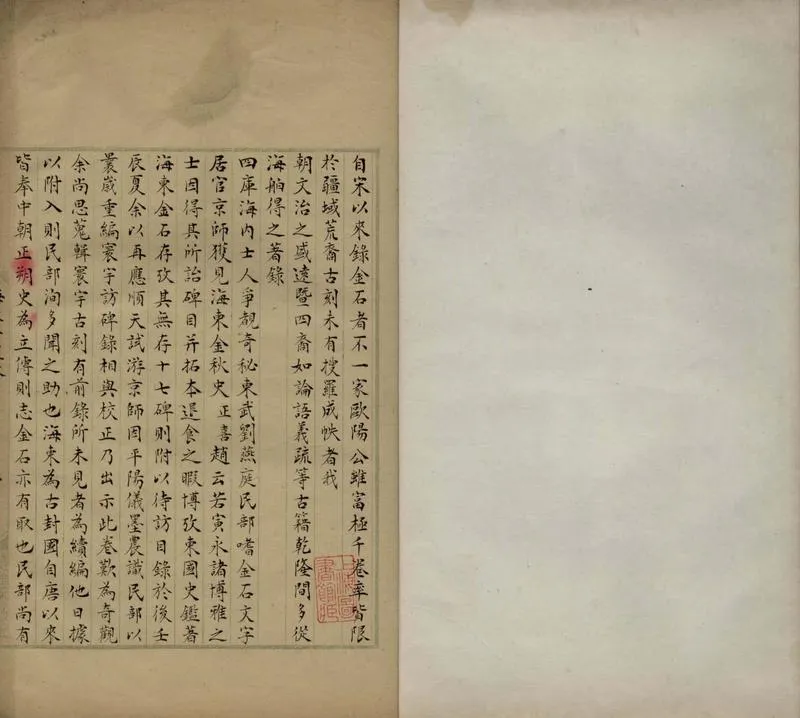 自宋以來錄金石者不一家歐陽公雖富極千卷率皆限
於疆域荒裔古刻未有搜羅成帙者我
朝文治之盛遠暨四裔如論語義疏等古籍乾隆間多從
海舶得之著錄
四庫海内士人爭覩奇秘東武劉燕庭民部嗜金石文字
居官京師獲見海東金秋史正喜趙云若寅永諸博雅之
士因得其所詒碑目并拓本退食之暇博攷東國史鑑著
海東金石存攷其無存十七碑則附以待訪目錄於後壬
辰夏余以再應順天試游京師因平陽儀墨農識民部以
曩歲重編寰宇訪碑錄相與校正乃出示此卷歎為奇觀
余尚思蒐輯寰宇古刻有前錄所未見者為續編他日據
以附入則民部洵多聞之助也海東為古封國自唐以來
皆奉中朝正朔史為立傳則志金石亦有取也民部尚有